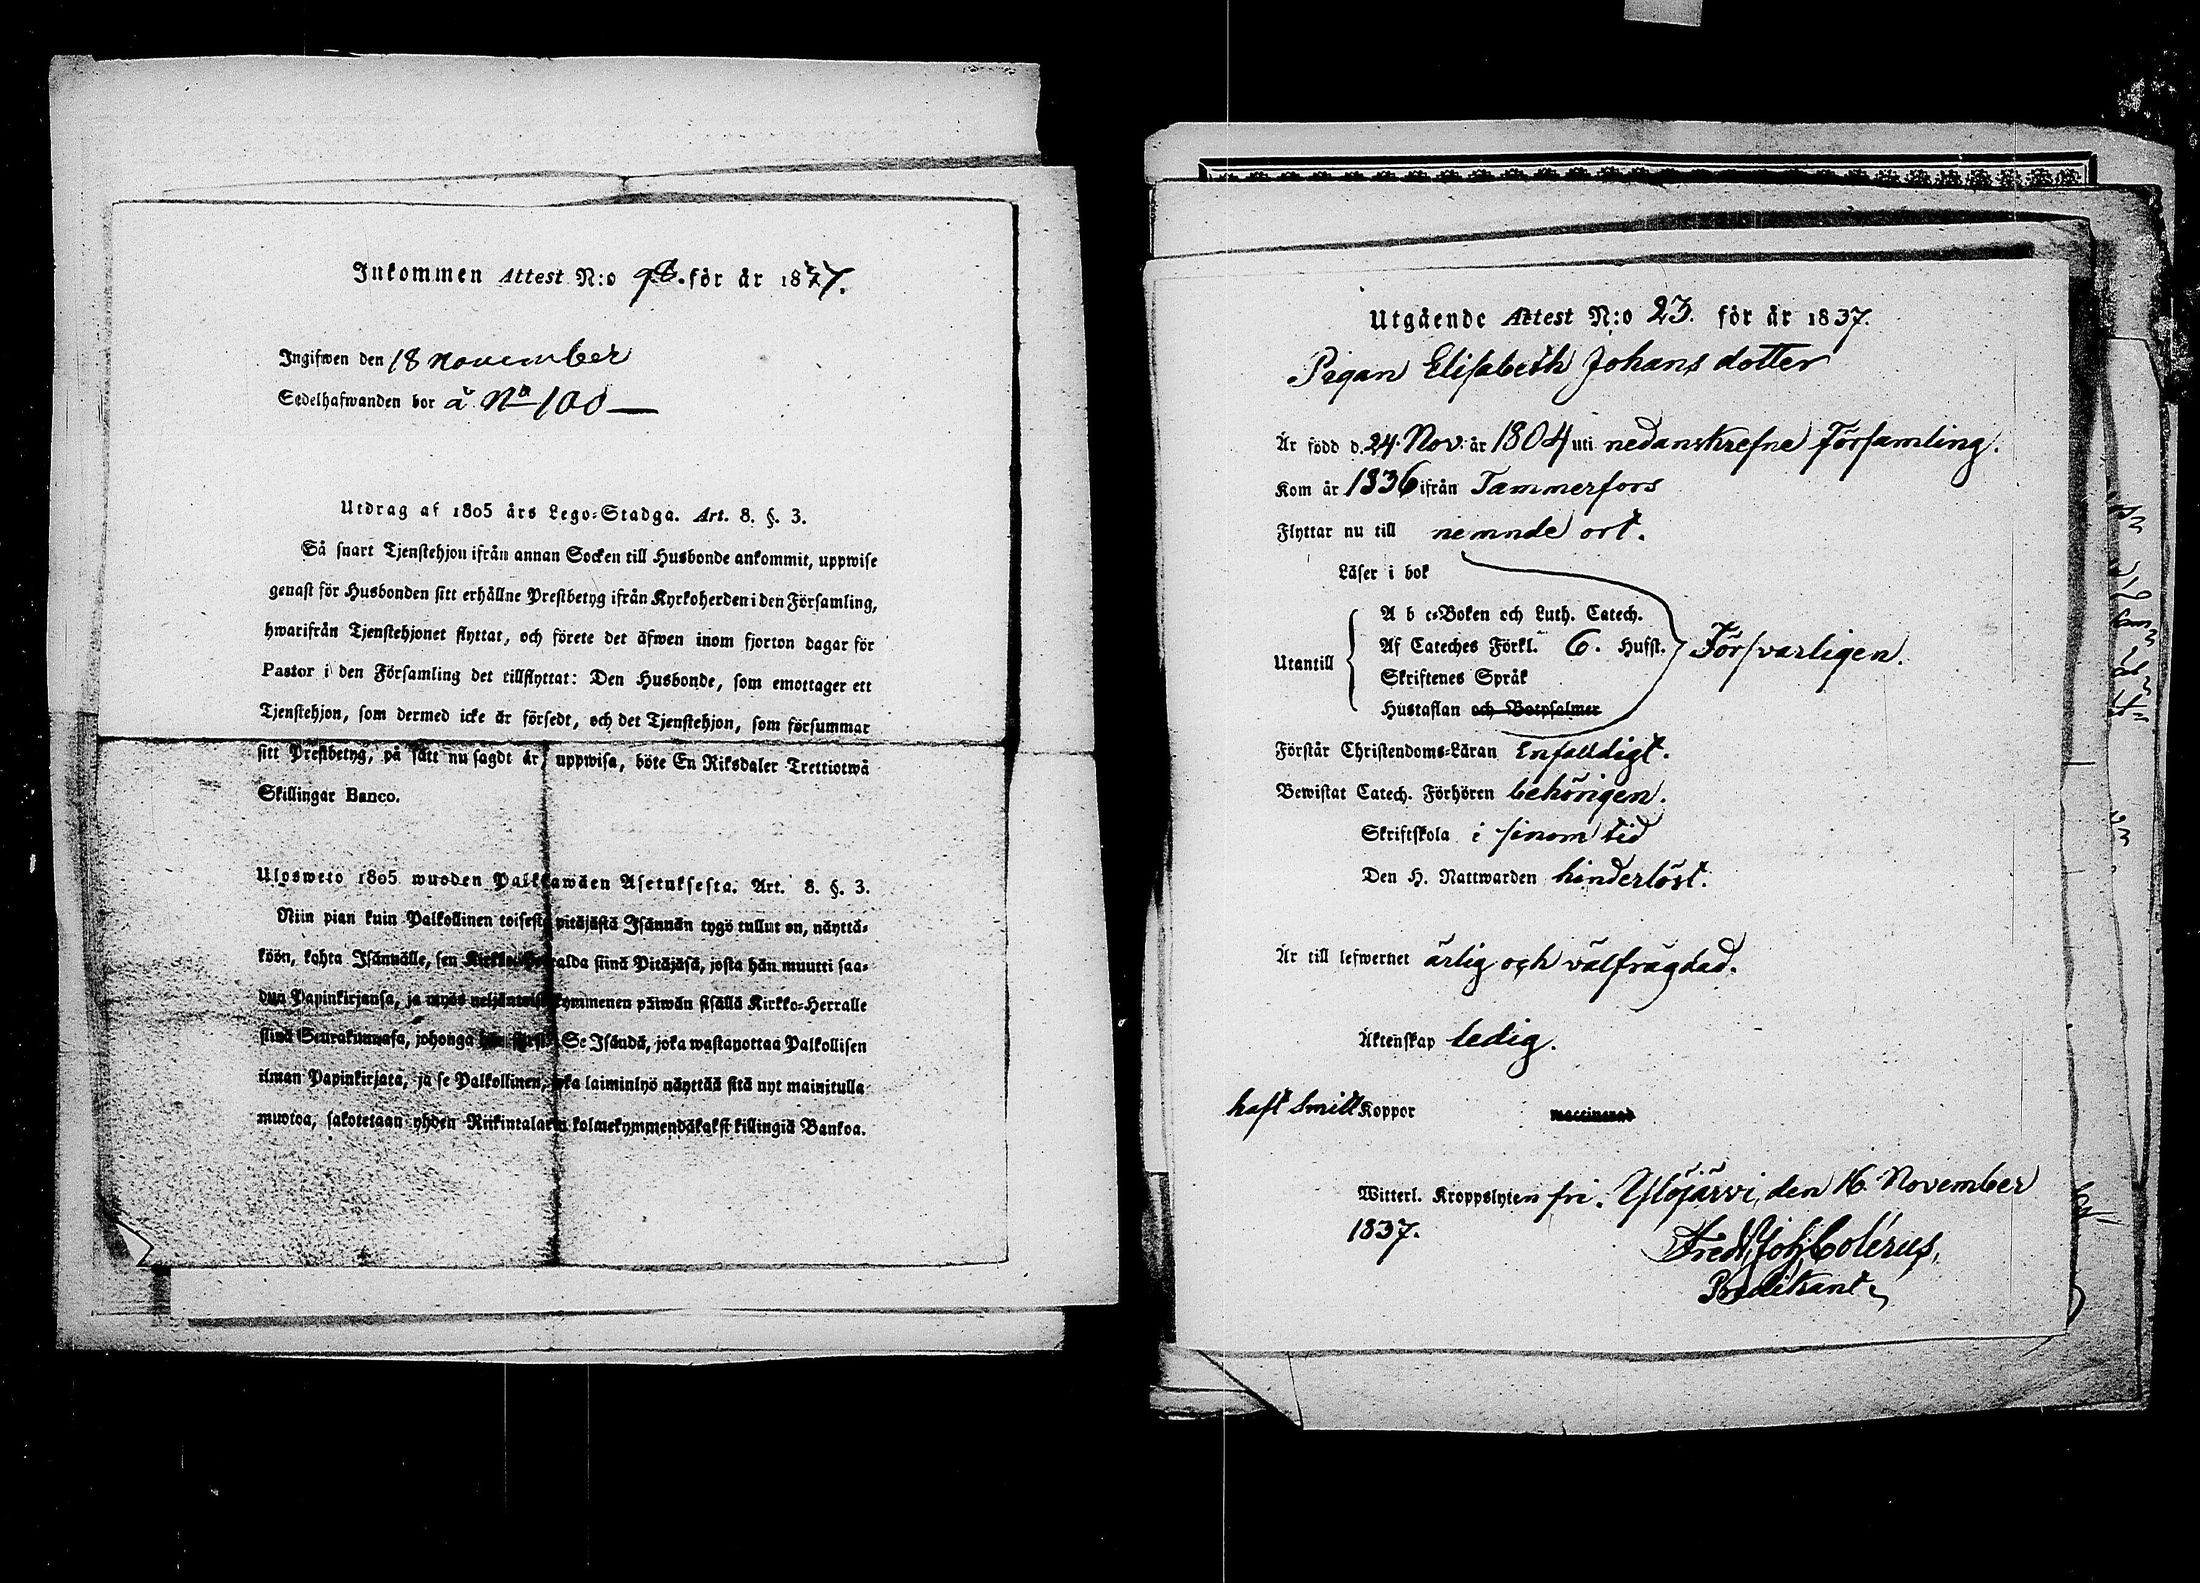 Inkommen Attest N:o 98. för år 1837.
Ingifwen den 18 November
Sedelhafwanden bor å No 100
Utdrag af 1805 års Lego-Stadga. Art. 8. §. 3.
Så snart Tjenstehjon ifrån annan Socken till Husbonde ankommit, uppwise
genast för Husbonden sitt erhållne Prestbetyg ifrån Kyrkoherden i den Församling,
hwarifrån Tjenstehjonet flyttat, och förete det äfwen inom fjorton dagar för
Pastor i den Församling det tillflyttat: Den Husbonde, som emottager ett
Tjenstehjon, som dermed icke är försedt, och det Tjenstehjon, som försummar
sitt Prestbetyg, på sätt nu sagdt är, uppwisa, böte En Riksdaler Trettiotwå
Skillingar Banco.
Ulosweto 1805 wuoden Palkkawäen Asetuksesta. Art. 8. §. 3.
Niin pian kuin Palkollinen toisesta pitäjästä Isännän tygö tullut on, näyttä-
köön, kohta Isännälle, sen Kirkko-Herralda siinä Pitäjäsä, josta hän muutti saa-
dun Papinkirjansa, ja myös neljäntoistakymmenen päiwän sisällä Kirkko-Herralle
siinä Seurakunnasa, johonga hän siirsi: Se Isändä, joka wastanottaa Palkollisen
ilman Papinkirjata, ja se Palkollinen, joka laiminlyö näyttää sitä nyt mainitulla
muotoa, sakotetaan yhden Riikintalarin kolmekymmendäkaksi killingiä Bankoa.
Utgående Attest N:o 23. för år 1837.
Pigan Elisabeth Johansdotter
Är född d. 24. Nov: år 1804 uti nedanskrefne Församling.
Kom år 1836 ifrån Tammerfors
Flyttar nu till nemnde ort.
Läser i bok
A b c-Boken och Luth. Catech.
Af Cateches Förkl. 6. Hufst.
Utantill Försvarligen.
Skriftenes Språk
Hustaflan och Botpsalmer
Förstår Christendoms-Läran Enfaldigt.
Bewistat Catech. Förhören behörigen.
Skriftskola i sinom tid
Den H. Nattwarden hinderlöst.
Är till lefwernet ärlig och välfrägdad.
Äktenskap ledig.
haft Smitt Koppor vaccinerad
Witterl. Kroppslyten fri. Ylöjärvi, den 16 November
1837.
Fredr. Joh. Colérus,
Predikant